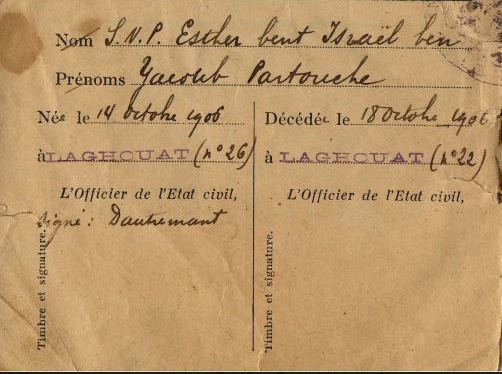 Nom S.N.P. Esther bent Israël ben
Prénoms Yacoub Partouche
Née le 14 octobre 1906
à LAGHOUAT (n° 26)
L'Officier de l'Etat civil,
signé: Dautremant
Timbre et signature.
Décédée le 18 octobre 1906
à LAGHOUAT (n° 22)
L'Officier de l'Etat civil,
Timbre et signature.